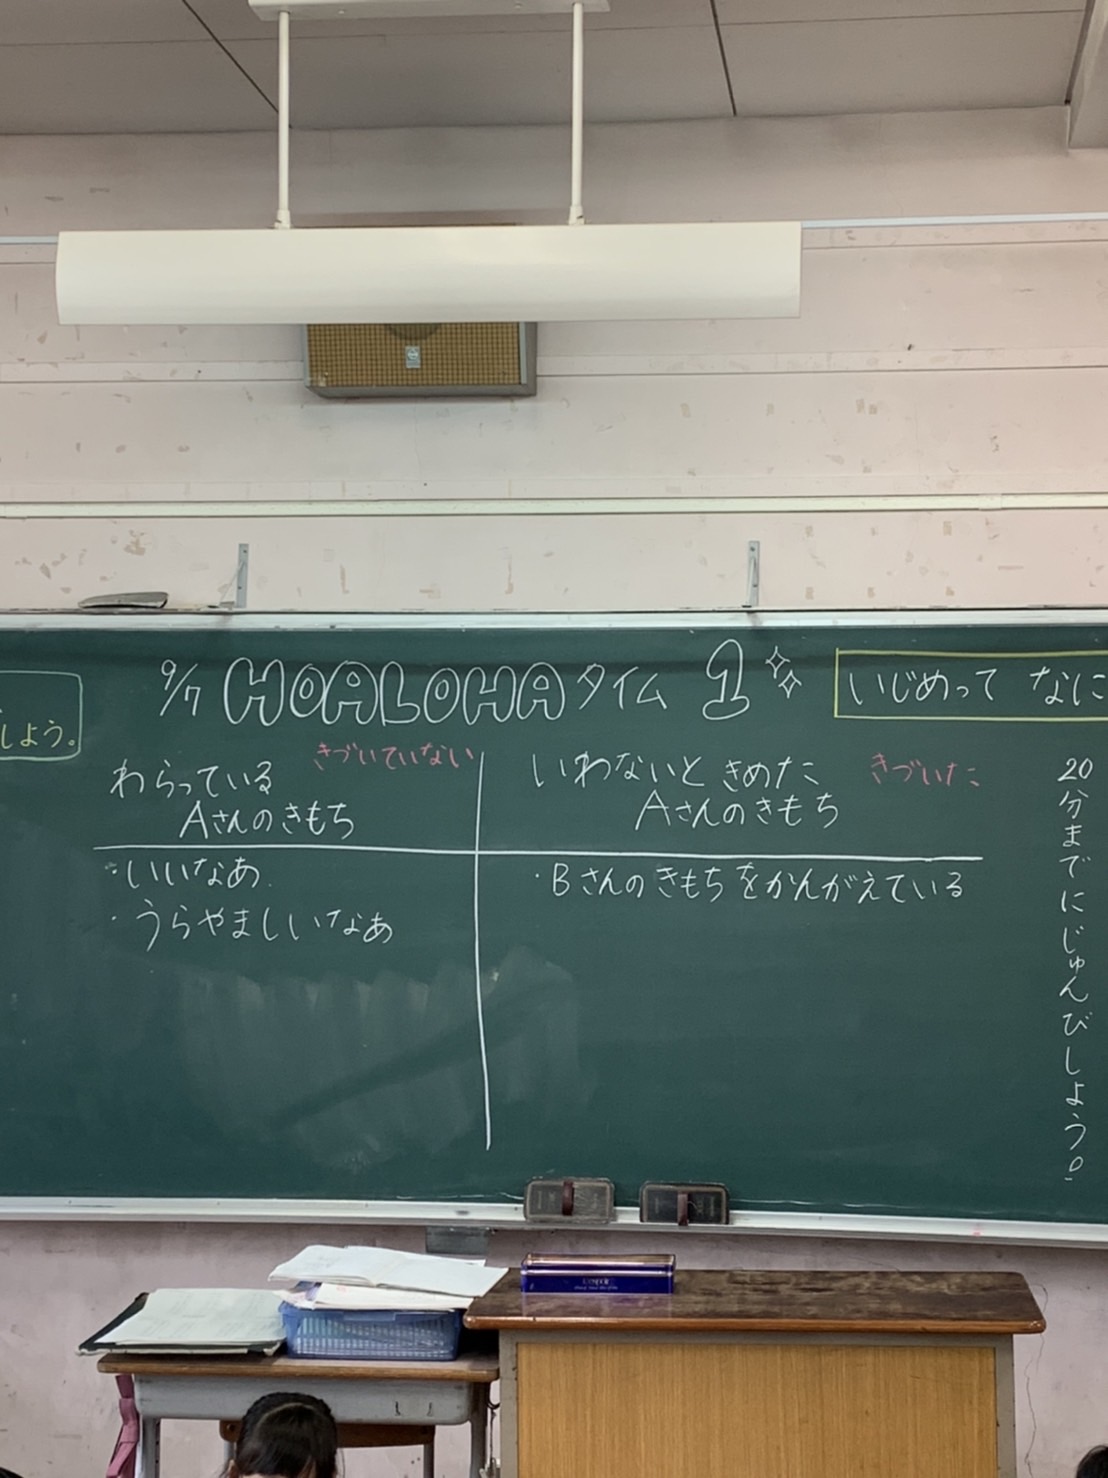 しよう。
9/7 HOALOHAタイム 1
いじめって なに
わらっている
きづいていない
Aさんのきもち
・いいなあ
・うらやましいなあ
いわないと きめた
きづいた
Aさんのきもち
・Bさんのきもちをかんがえている
20分までにじゅんびしよう。